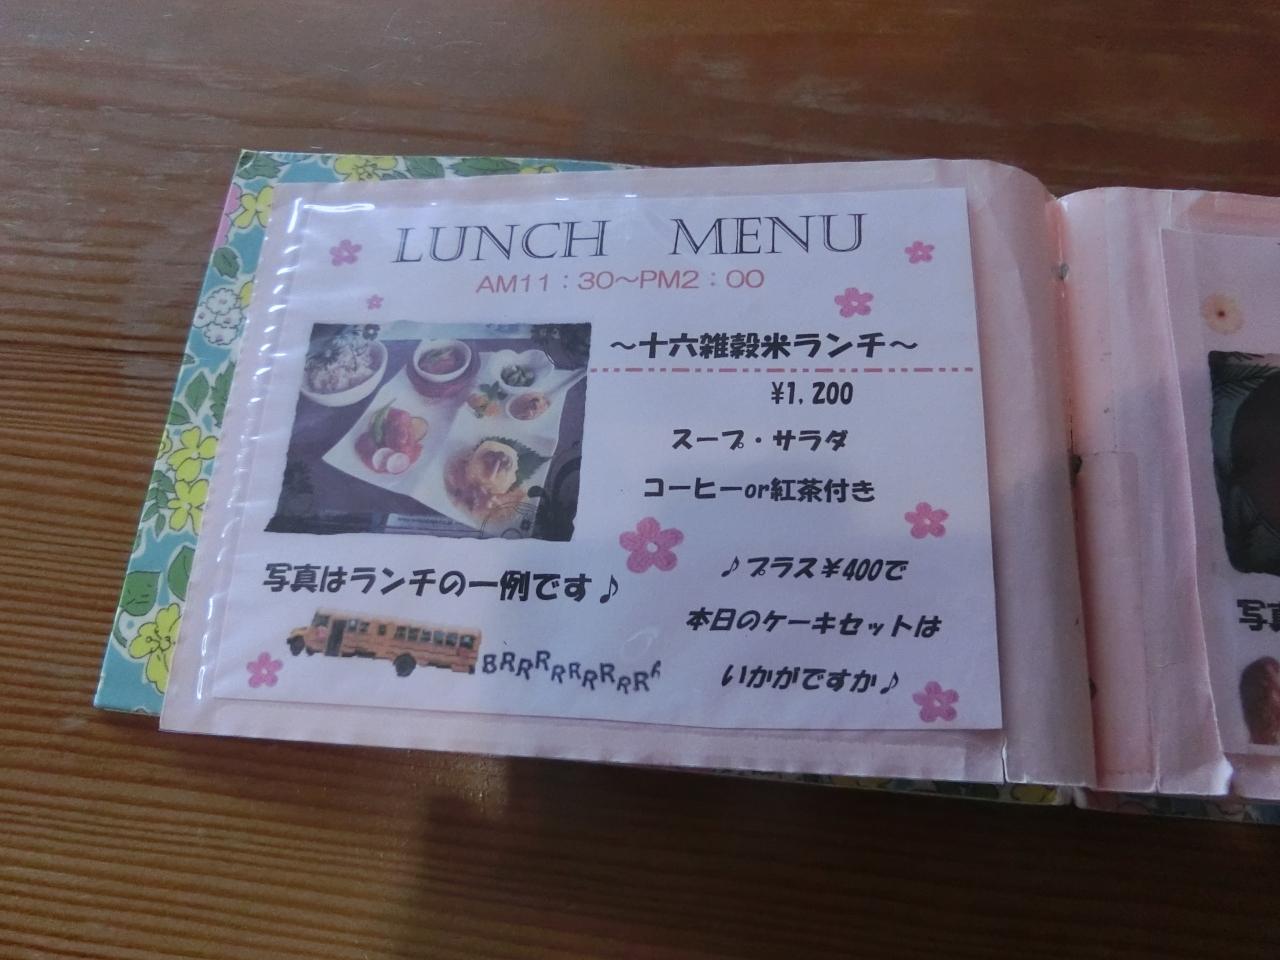 LUNCH MENU
AM11：30～PM2：00
～十六雑穀米ランチ～
¥1,200
スープ・サラダ
コーヒーor紅茶付き
写真はランチの一例です♪
♪プラス¥400で
本日のケーキセットは
いかがですか♪
BRRRRRRRRRR
写真